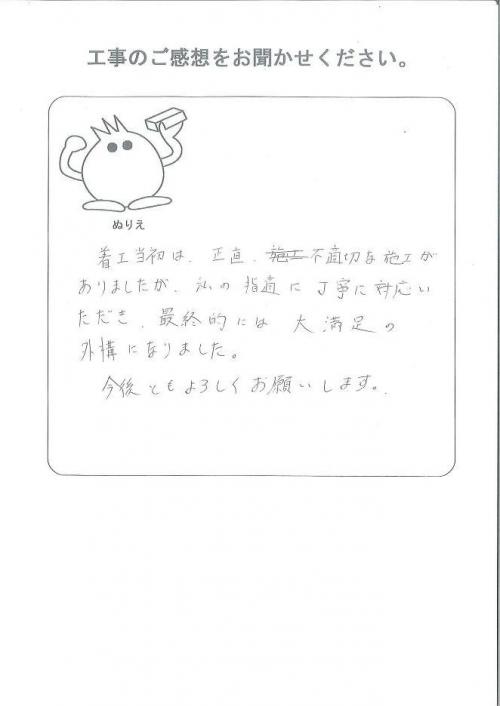 工事のご感想をお聞かせください。
ぬりえ
着工当初は、正直、不適切な施工が
ありましたが、私の指適に丁寧に対応い
ただき、最終的には 大満足の
外構になりました。
今後ともよろしくお願いします。